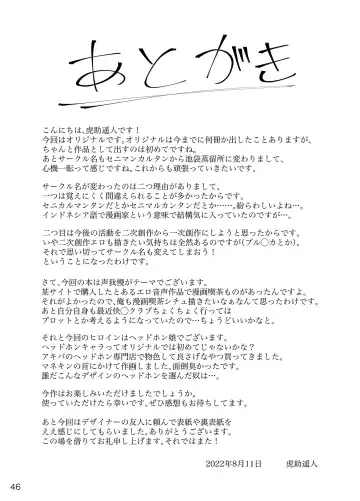 あとがき
こんにちは、虎助遥人です！
今回はオリジナルです。オリジナルは今までに何冊か出したことありますが、
ちゃんと作品として出すのは初めてですね。
あとサークル名もセニマンカルタンから池袋蒸留所に変わりまして、
心機一転って感じですね。これからも頑張っていきたいです。
サークル名が変わったのは二つ理由がありまして、
一つは覚えにくく間違えられることが多かったからです。
セニカルマンタンだとかセニマルカンタンだとか……。紛らわしいよね…。
インドネシア語で漫画家という意味で結構気に入っていたのですが…。
二つ目は今後の活動を二次創作から一次創作にしようと思ったからです。
いや二次創作エロも描きたい気持ちは全然あるのですが（ブル◯カとか）。
それで思い切ってサークル名も変えてしまおう！
ということになったわけです。
さて、今回の本は声我慢がテーマでございます。
某サイトで購入したとあるエロ音声作品で漫画喫茶ものがあったんですよ。
それがよかったので、俺も漫画喫茶シチュ描きたいなぁなんて思ったわけです。
あと自分自身も最近快◯クラブちょくちょく行っては
プロットとか考えるようになっていたので…ちょうどいいかなと。
それと今回のヒロインはヘッドホン娘でございます。
ヘッドホンキャラってオリジナルでは初めてじゃないかな？
アキバのヘッドホン専門店で物色して良さげなやつ買ってきました。
マネキンの首にかけて作画しました。面倒臭かったです。
誰だこんなデザインのヘッドホンを選んだ奴は…。
今作はお楽しみいただけましたでしょうか。
使っていただけたら幸いです。ぜひ感想もお待ちしてます。
あと今回はデザイナーの友人に頼んで表紙や裏表紙を
ええ感じにしてもらいました。ありがとうございます。
この場を借りてお礼申し上げます。それではまた！
2022年8月11日　虎助遥人
46